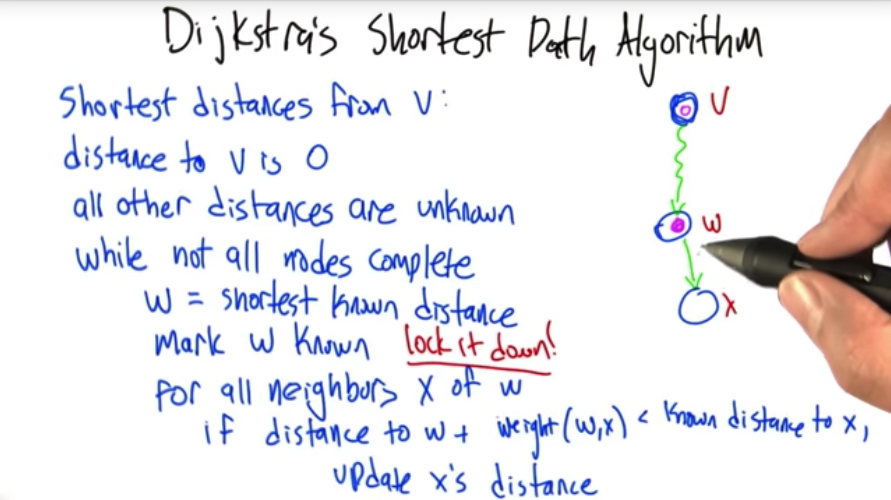 Dijkstra's Shortest Path Algorithm
Shortest distances from V:
distance to V is 0
all other distances are unknown
while not all nodes complete
W = shortest known distance
mark W known lock it down!
for all neighbors X of W
if distance to W + weight(W,X) < known distance to X,
update X's distance
V
W
X